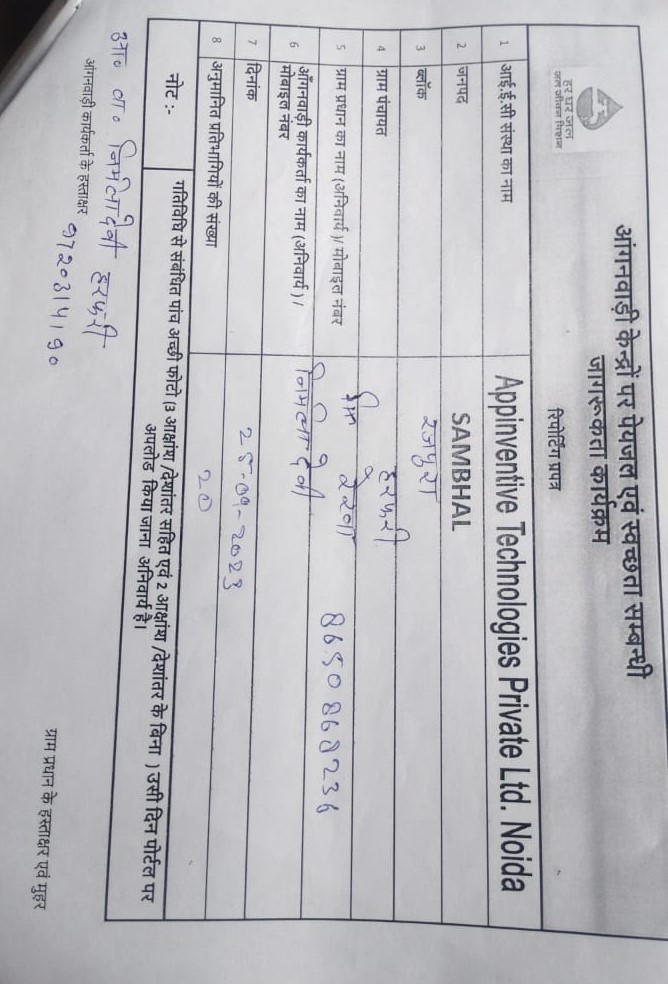 हर घर जल
जल जीवन मिशन
आंगनवाड़ी केन्द्रों पर पेयजल एवं स्वच्छता सम्बन्धी
जागरूकता कार्यक्रम
रिपोर्टिंग प्रपत्र
1 आई.ई.सी संस्था का नाम Appinventive Technologies Private Ltd. Noida
2 जनपद SAMBHAL
3 ब्लॉक रजपुरा
4 ग्राम पंचायत हरफरी
5 ग्राम प्रधान का नाम (अनिवार्य )/ मोबाइल नंबर 8650868236
6 आँगनवाड़ी कार्यकर्ता का नाम (अनिवार्य ) / निर्मला देवी
मोबाइल नंबर
7 दिनांक 25-09-2023
8 अनुमानित प्रतिभागियों की संख्या 20
नोट :- गतिविधि से संबंधित पांच अच्छी फोटो (3 आक्षांश /देशांतर सहित एवं 2 आक्षांश /देशांतर के बिना ) उसी दिन पोर्टल पर
अपलोड किया जाना अनिवार्य है।
आ० वा० निर्मला देवी हरफरी
आंगनवाड़ी कार्यकर्ता के हस्ताक्षर
9720314190
ग्राम प्रधान के हस्ताक्षर एवं मुहर